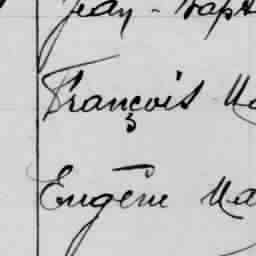 Jean-Bapt
François Ma
Eugène Ma